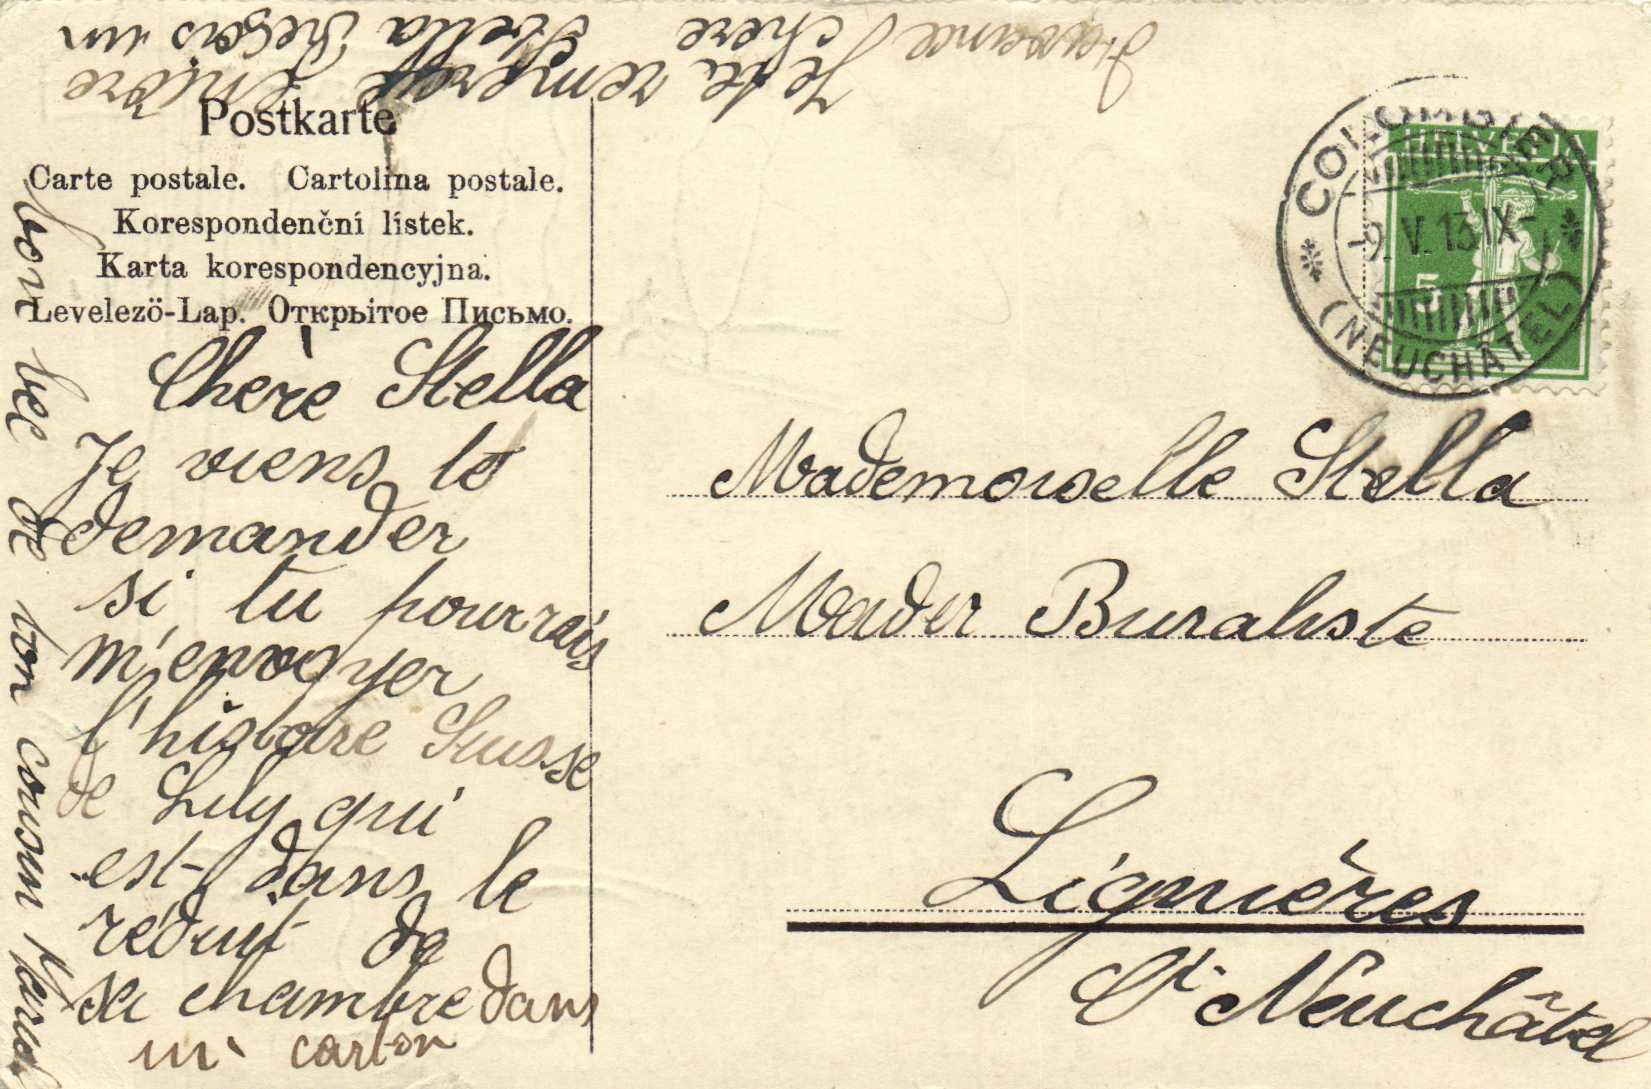 Postkarte
Carte postale. Cartolina postale.
Korespondenční lístek.
Karta korespondencyjna.
Levelező-Lap. Открытое Письмо.
COLOMBIER
-9. V. 13 IX-
(NEUCHÂTEL)
HELVETIA
5
Chère Stella
Je viens te
demander
si tu pourrais
m'envoyer
l'histoire Suisse
de Lily qui
est dans le
réduit de
sa chambre dans
un carton
Je te remercie
d'avance chère Stella Reçois un
bon bec de ton cousin
Mademoiselle Stella
Mader Buraliste
Lignières
Ct. Neuchâtel